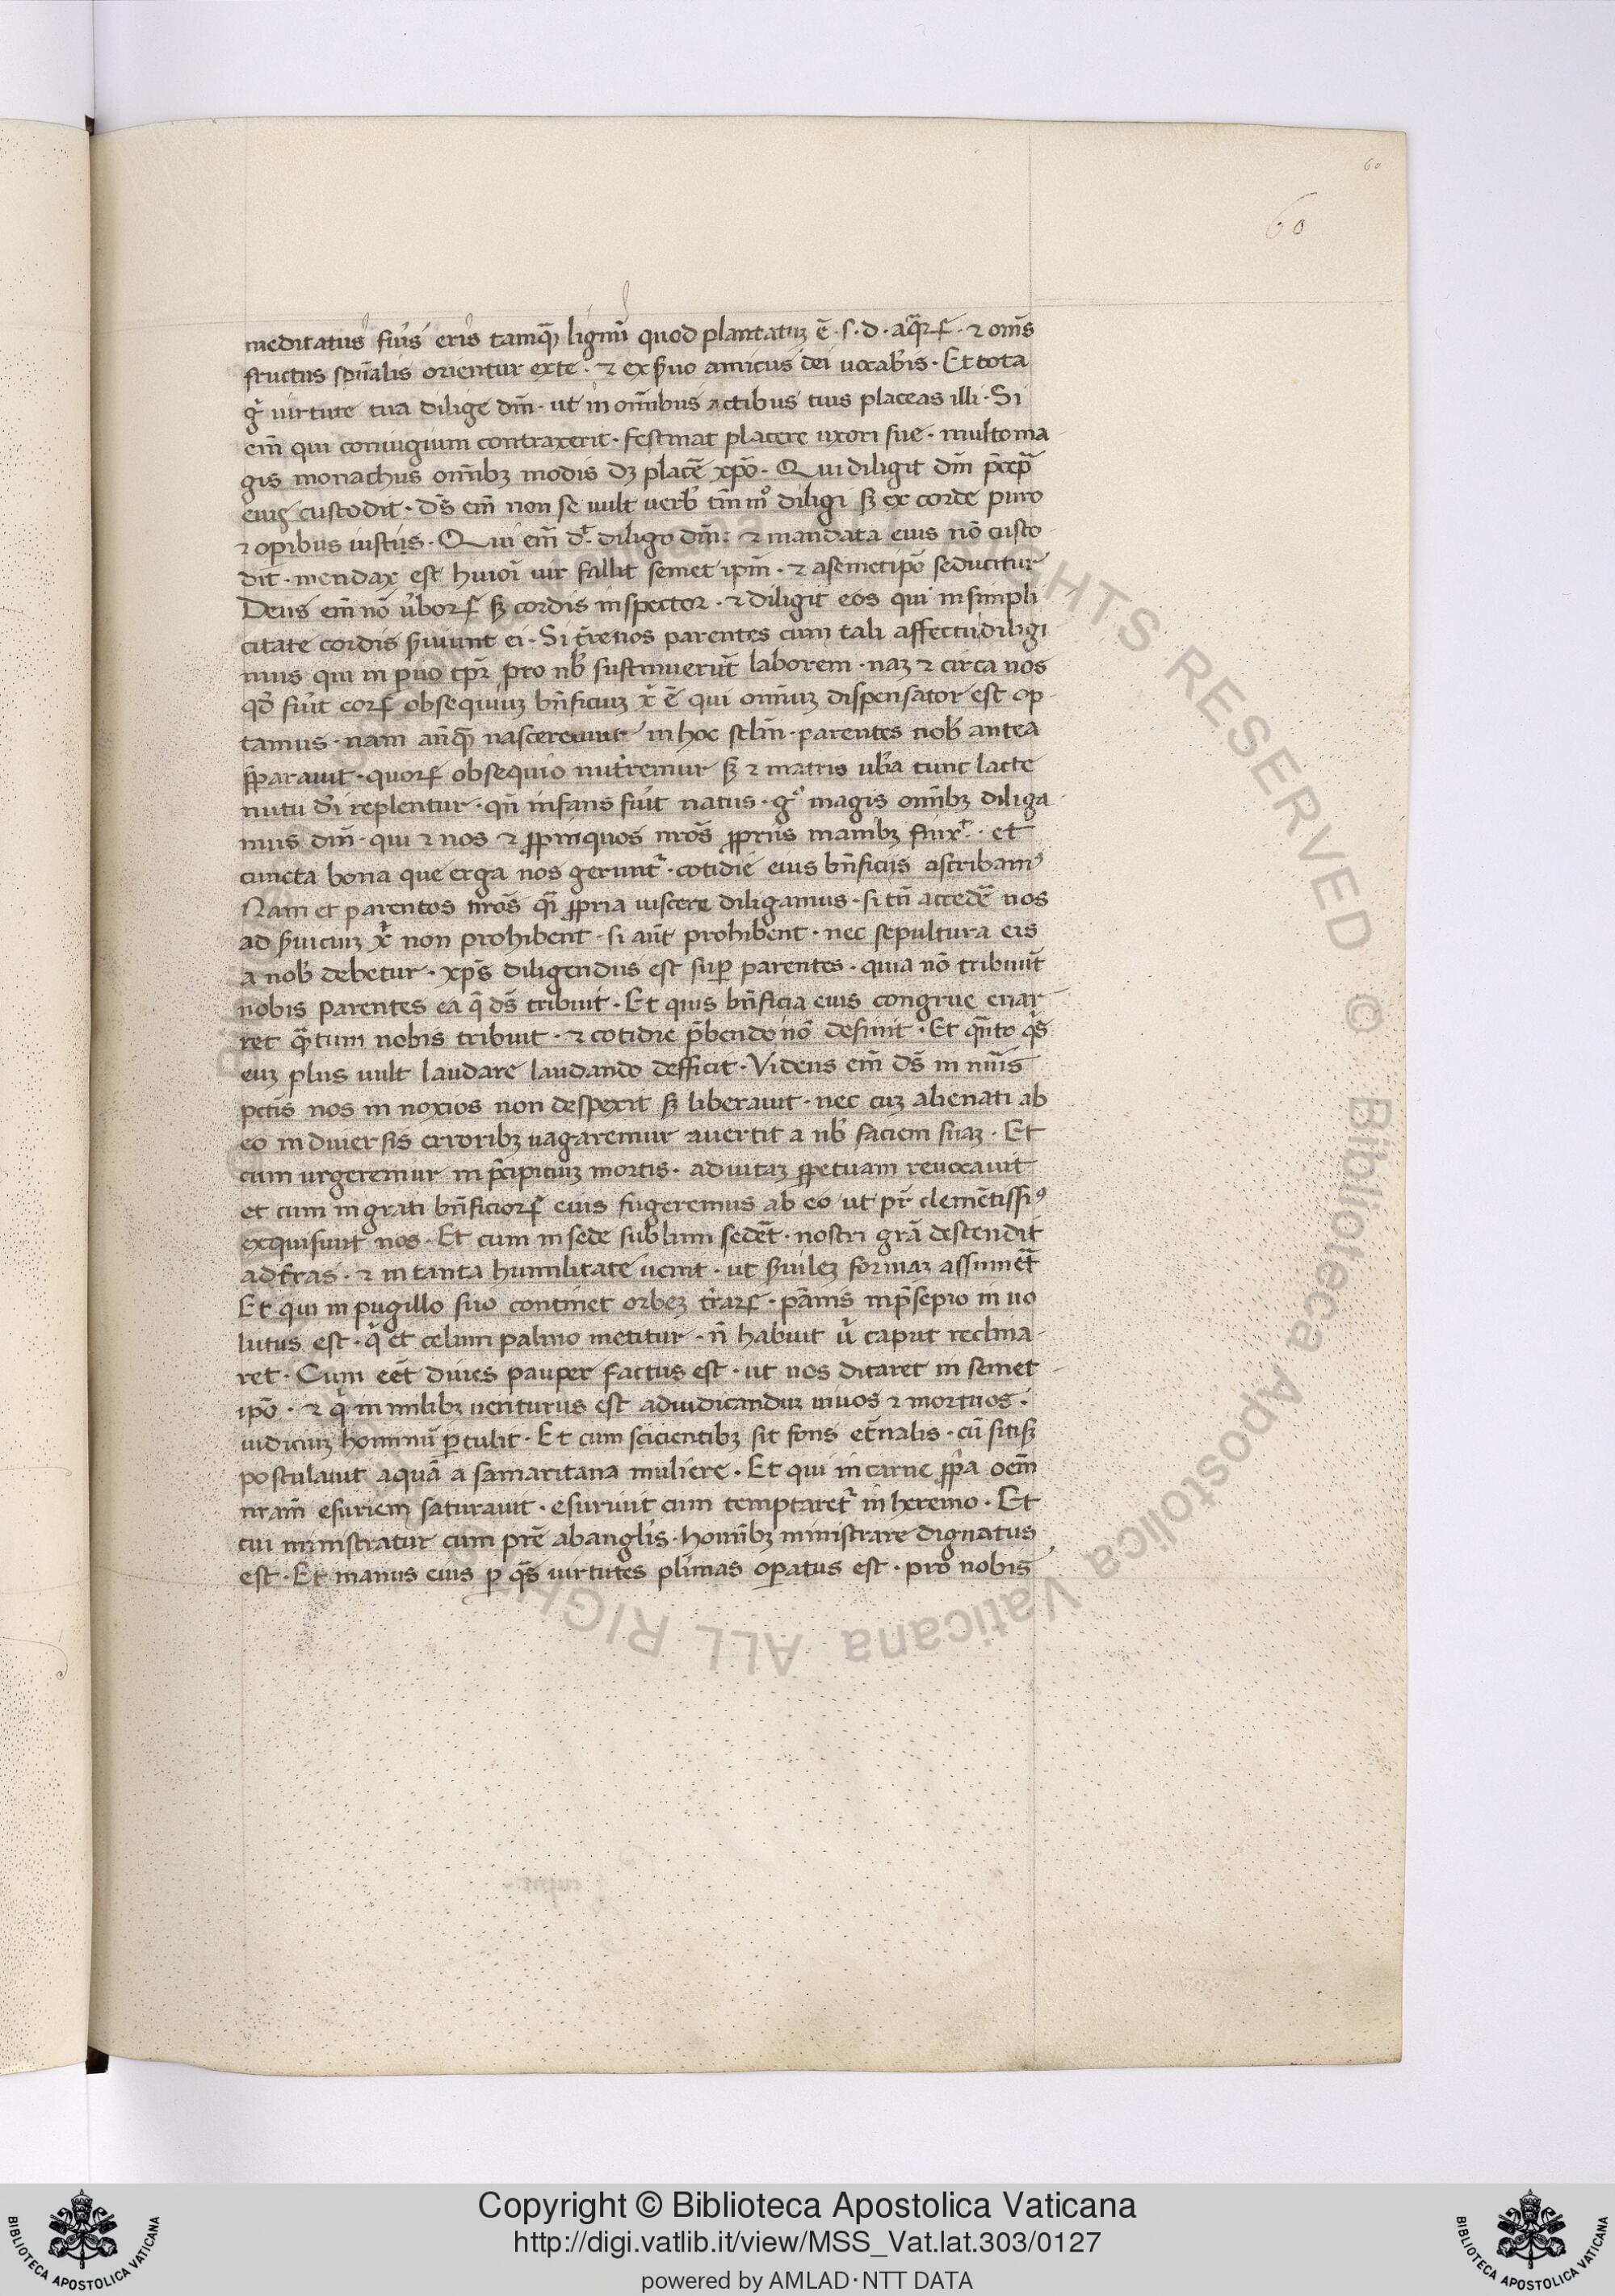 60
60
meditatus fũis eris tamq̃ lignũ quod plantatuȝ ẽ · s · d · aq̃rꝝ · ⁊ om̃s
fructus spũalis orientur exte · ⁊ exẜuo amicus dei uocab̃is · Et tota
g̃ uirtute tua dilige dm̃ · ut in om̃ibus actibus tuis placeas illi · Si
em̃ qui coniugium contraxerit · festinat placere uxori sue · multo ma
gis monachus om̃ibȝ modis dȝ placẽ xp̃o · Qui diligit dm̃ p̃cep̃
eius custodit · Ds̃ em̃ non se uult uerb̾ tm̃mº diligi sȝ ex corde puro
⁊ oꝑibus iustis · Qui em̃ dt̾ diligo dm̃ · ⁊ mandata eius nõ custo
dit · mendax est huiõi uir fallit semet ip̃m · ⁊ asemetip̃o seducitur
Deus em̃ nõ ũborꝝ sȝ cordis inspector · ⁊ diligit eos qui insimpli
citate cordis ẜuiunt ei · Si t̃renos parentes cum tali affectu diligi
mus qui in ꝑuo tp̃r pro nb̾ sustinuerũt laborem · naȝ ⁊ circa nos
qd̾ fũit corꝝ obsequiuȝ bñficiuȝ x̃ ẽ qui omniuȝ dispensator est op
tamus · nam añq̃ nasceremur in hoc sclm̃ · parentes nob̾ antea
p̃parauit · quorꝝ obsequio nut̃remur sȝ ⁊ matris ub̃a tunc lacte
nutu di̾ replentur · qñ infans fũit natus · gº magis om̃ibȝ diliga
mus dm̃ · qui ⁊ nos ⁊ ꝓpinquos nr̃os ꝓpriis manibȝ finxt̾ · et
cuncta bona que erga nos gerunt̾ · cotidie eius bñficiis ascribamꝰ
Nam et parentos nr̃os q̃i ꝓpria uiscere diligamus · si tñ accedẽ nos
ad ẜuiciuȝ x̃ non prohibent · si aũt prohibent · nec sepultura eis
a nob̾ debetur · xp̃s diligendus est suꝑ parentes · quia nõ tribuũt
nobis parentes ea q̃ ds̃ tribuit · Et quis bñficia eius congrue enar
ret q̃tum nobis tribuit · ⁊ cotidie p̃bendo nõ desinit · Et q̃nto q̃s
euȝ plus uult laudare laudando defficit · Videns em̃ ds̃ in nimis
pctis̃ nos in noxios non despexit sȝ liberauit · nec cuȝ alienati ab
eo in diuersis erroribȝ uagaremur auertit a nb̾ faciem suaȝ · Et
cum urgeremur in p̃cipitiuȝ mortis · aduitaȝ ꝑpetuam reuocauit
et cum ingrati bñficiorꝝ eius fugeremus ab eo ut pr̃ clemẽtissiꝰ
exquisiuit nos · Et cum in sede sublimi sedẽt · nostri grã descendit
adt̃ras · ⁊ in tanta humilitate uenit · ut ẜuileȝ formaȝ assumẽt
Et qui in pugillo suo continet orbeȝ t̃rarꝝ · pãnis inp̃sepio in uo
lutus est · q̾ et celum palmo metitur · ñ habuit ũ caput reclina
ret · Cum eẽt diues pauper factus est · ut nos ditaret in semet
ip̃o · ⁊ q̾ in milibȝ uenturus est adiudicanduȝ uiuos ⁊ mortuos ·
iudiciuȝ hominũ ꝑtulit · Et cum scicientibȝ sit fons et̃nalis · cũ sitisȝ
postulauit aquã a samaritana muliere · Et qui incarne ꝓp̃a oem̃
nram̃ esuriem saturauit · esuriuit cum temptaret̾ in heremo · Et
cui ministratur cum pr̃e abangl̾is · homĩbȝ ministrare dignatus
est · Et manus eius ꝑ q̃s uirtutes pl̾imas oꝑatus est · pro nobis
Copyright © Biblioteca Apostolica Vaticana
http://digi.vatlib.it/view/MSS_Vat.lat.303/0127
powered by AMLAD·NTT DATA
BIBLIOTECA APOSTOLICA VATICANA
BIBLIOTECA APOSTOLICA VATICANA